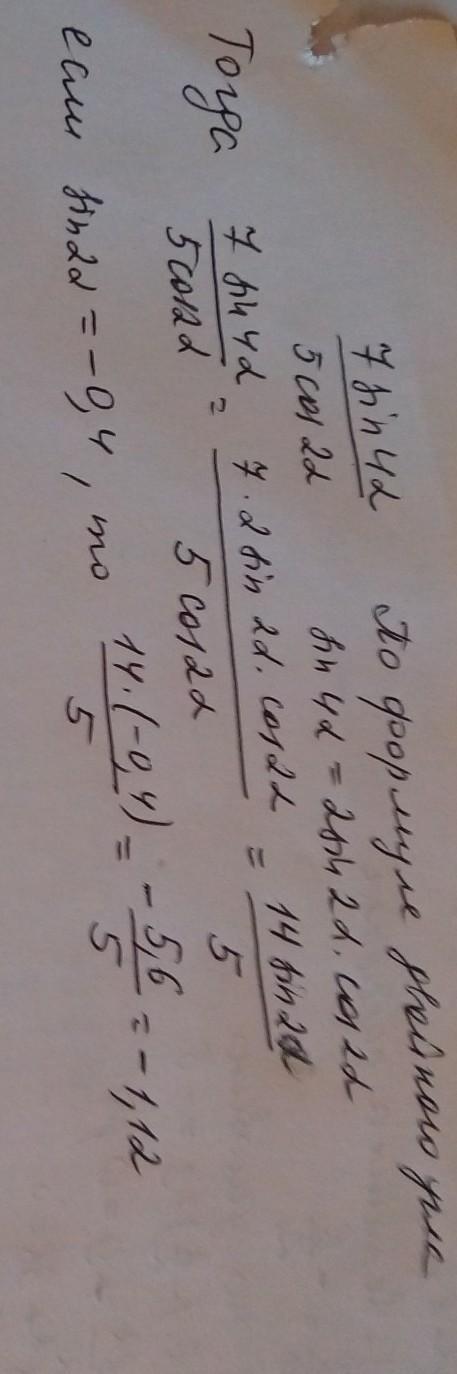 7 sin 4α / 5 cos 2α По формуле двойного угла
sin 4α = 2sin 2α · cos 2α
Тогда 7 sin 4α / 5 cos 2α = 7 · 2 sin 2α · cos 2α / 5 cos 2α = 14 sin 2α / 5
если sin 2α = -0,4, то 14 · (-0,4) / 5 = -5,6 / 5 = -1,12